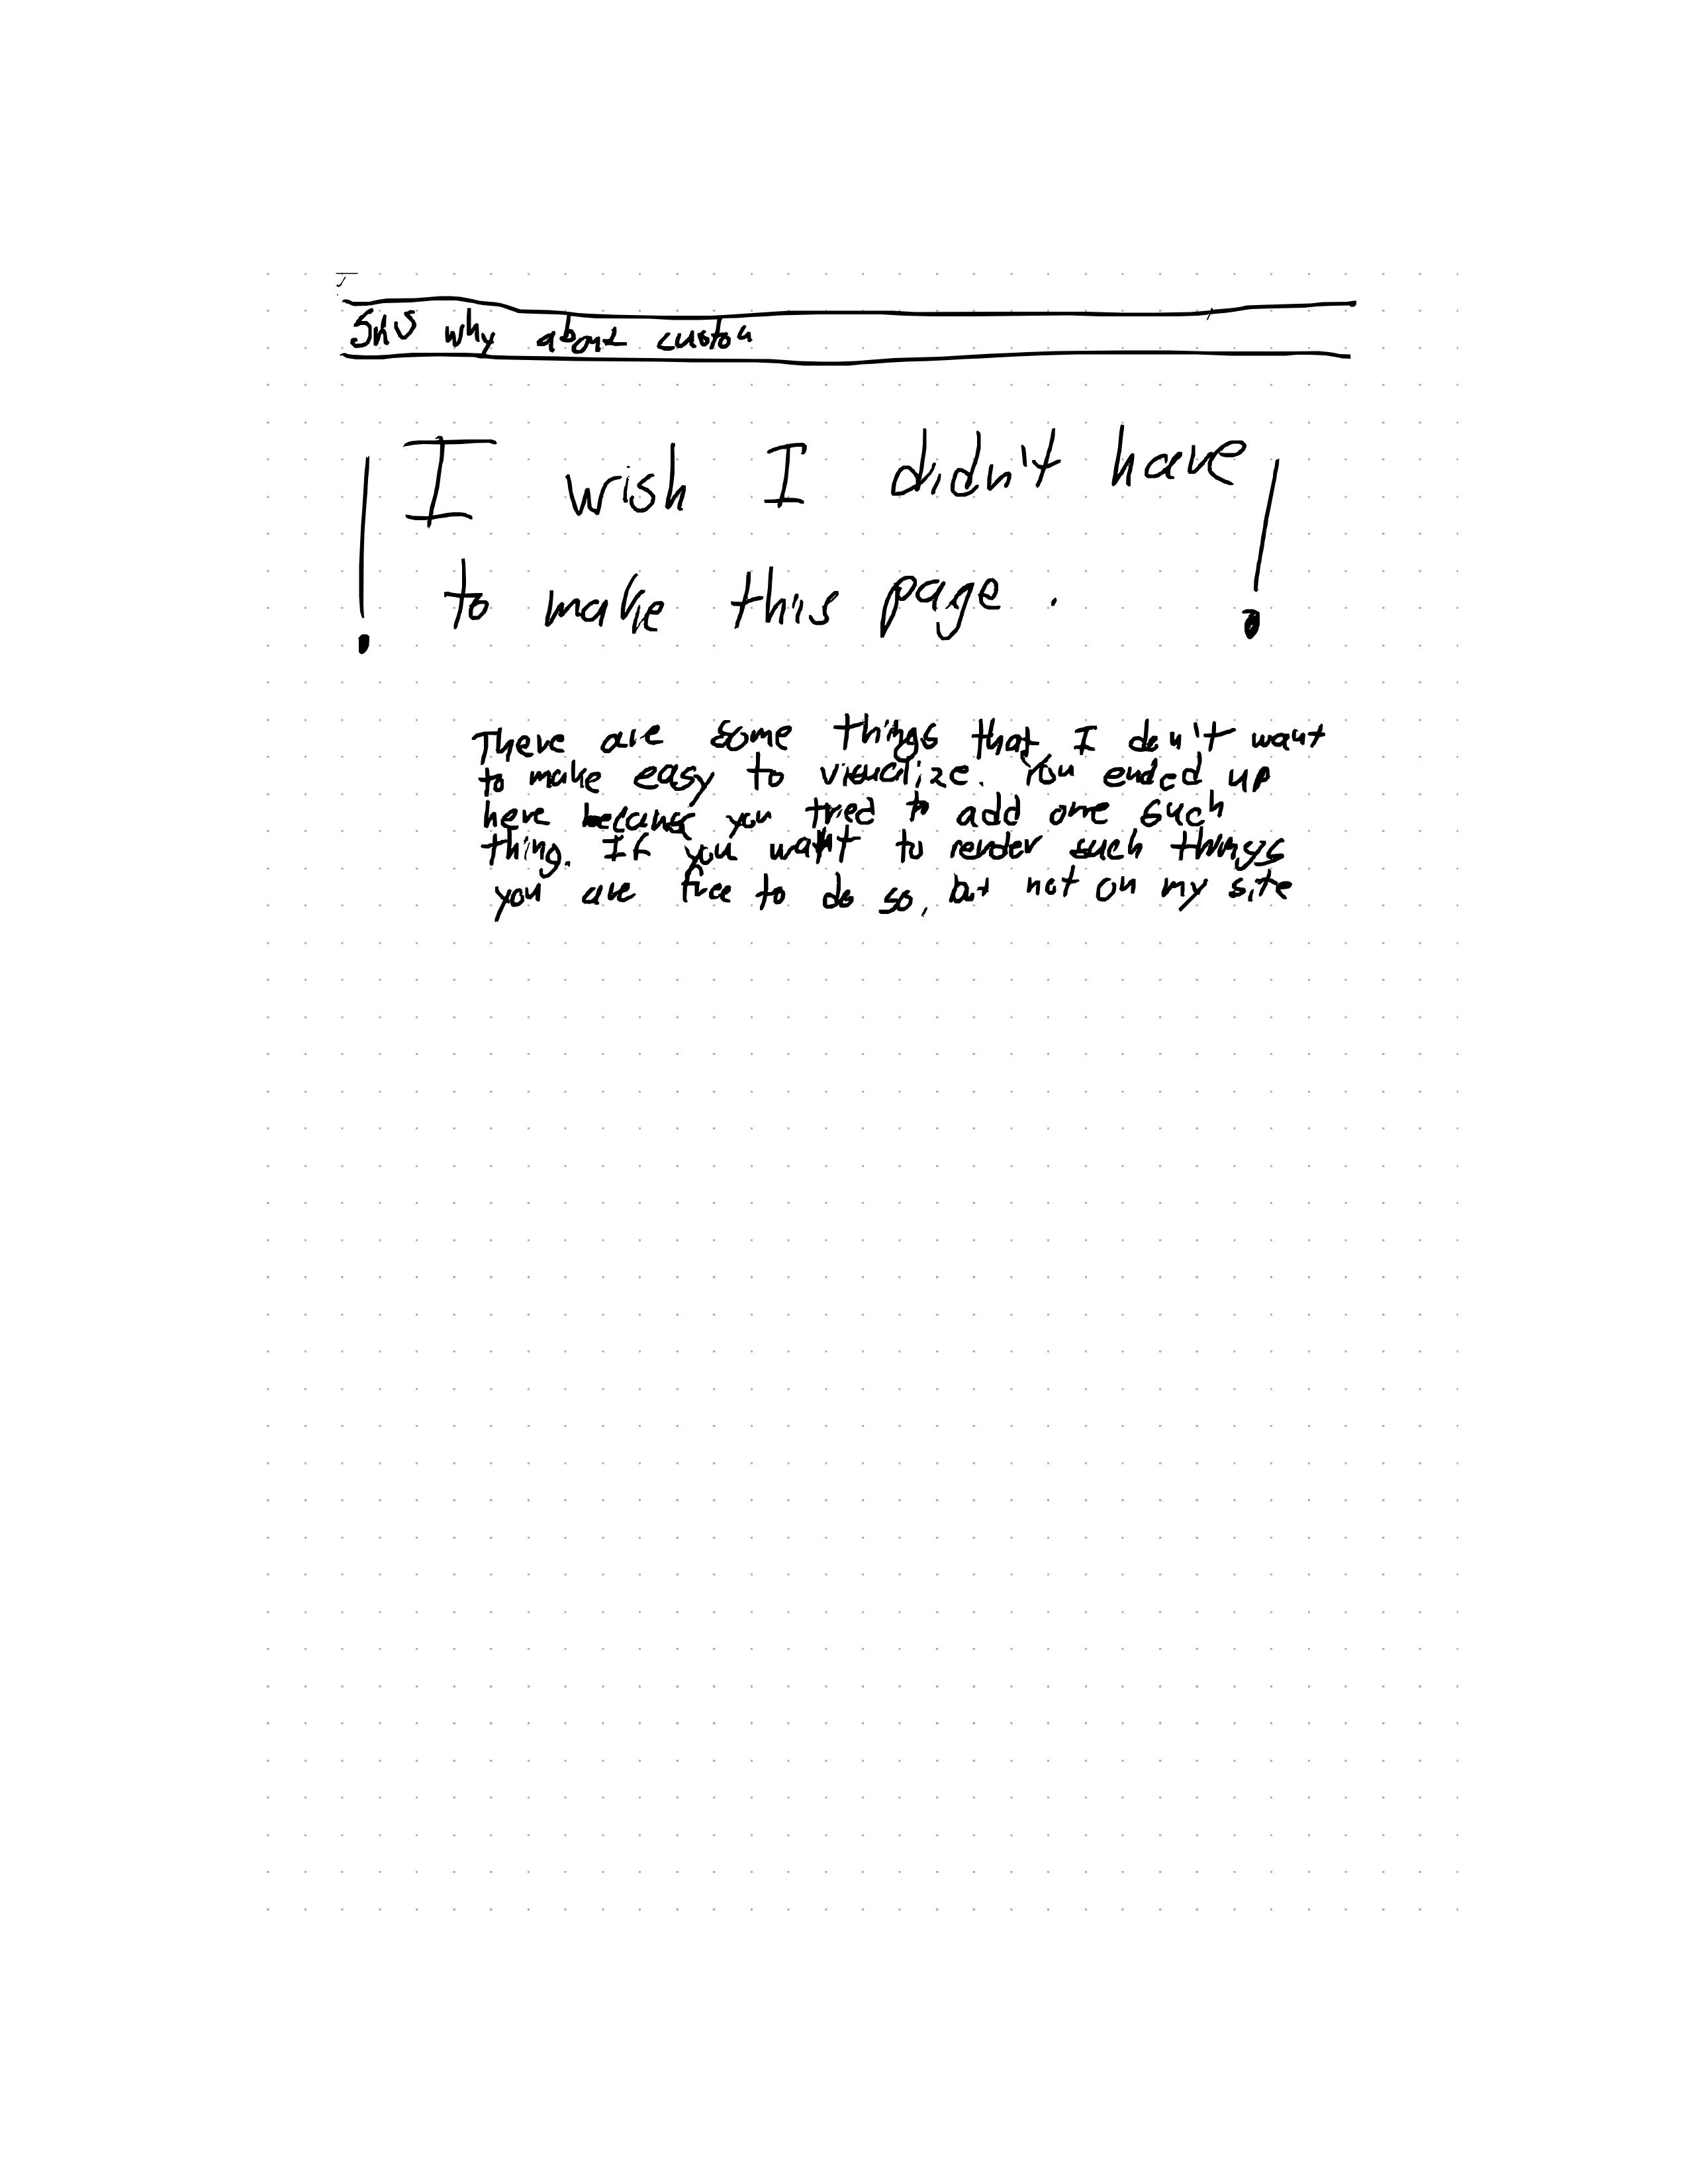 why about custom
! I wish I didn't have !
to make this page.
There are some things that I don't want
to make easy to visualize. You ended up
here because you tried to add one such
thing. If you want to render such things
you are free to do so, but not on my site